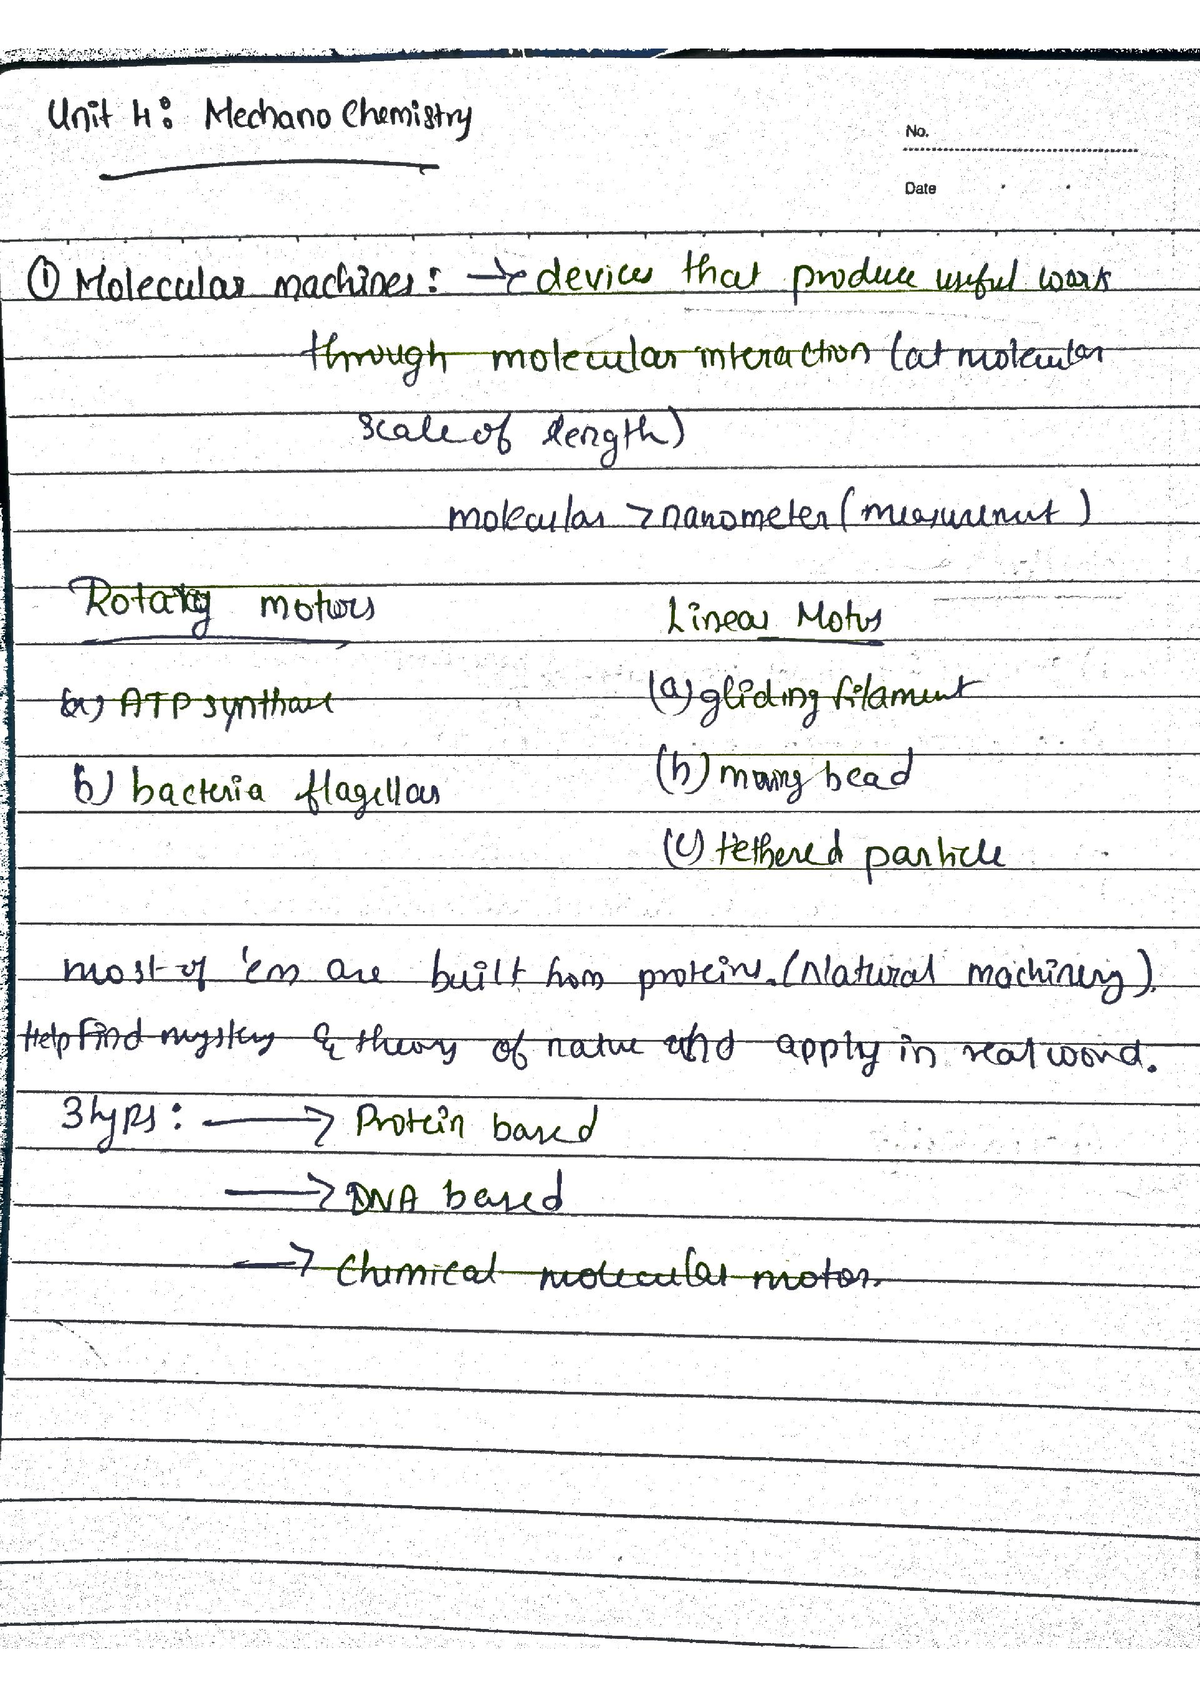 Unit 4: Mechano Chemistry
No.
Date
① Molecular machines: → devices that produce useful work
through molecular interaction (at molecular
scale of length)
molecular > nanometer (measurement)
Rotary motors
Linear Motors
(a) ATP synthase
(a) gliding filament
b) bacteria flagellar
(b) moving bead
(c) tethered particle
most of 'em are built from proteins. (Natural machinery).
Help find mystery & theory of nature and apply in real world.
3 types: → Protein based
→ DNA based
→ Chemical molecular motor.